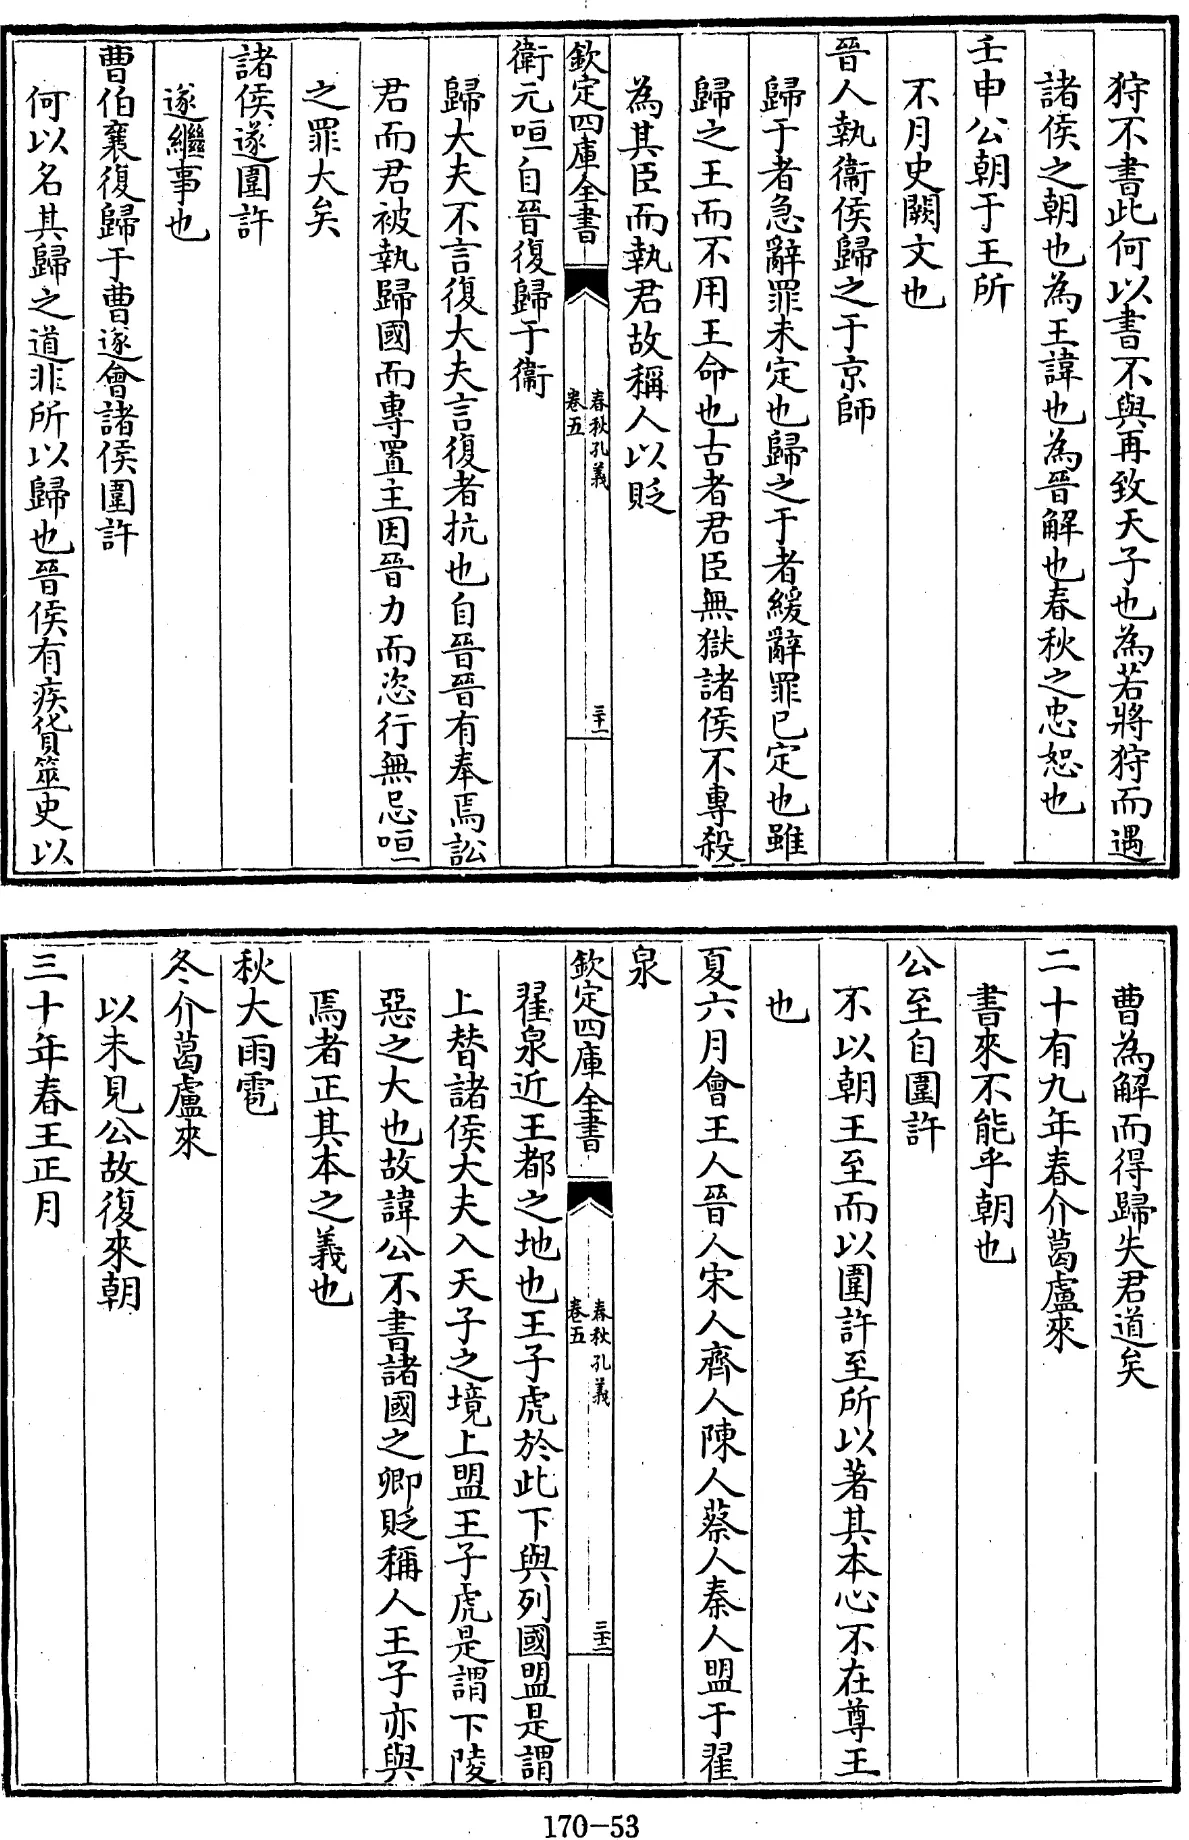 狩不書此何以書不與再致天子也為若將狩而遇
諸侯之朝也為王諱也為晉解也春秋之忠恕也
壬申公朝于王所
不月史闕文也
晉人執衞侯歸之于京師
歸于者急辭罪未定也歸之于者緩辭罪已定也雖
歸之王而不用王命也古者君臣無獄諸侯不專殺
為其臣而執君故稱人以貶
欽定四庫全書
春秋孔義
卷五
三十一
衛元咺自晉復歸于衞
歸大夫不言復大夫言復者抗也自晉晉有奉焉訟
君而君被執歸國而專置主因晉力而恣行無忌咺
之罪大矣
諸侯遂圍許
遂繼事也
曹伯襄復歸于曹遂會諸侯圍許
何以名其歸之道非所以歸也晉侯有疾貨筮史以
曹為解而得歸失君道矣
二十有九年春介葛盧來
書來不能乎朝也
公至自圍許
不以朝王至而以圍許至所以著其本心不在尊王
也
夏六月會王人晉人宋人齊人陳人蔡人秦人盟于翟
泉
欽定四庫全書
春秋孔義
卷五
三十二
翟泉近王都之地也王子虎於此下與列國盟是謂
上替諸侯大夫入天子之境上盟王子虎是謂下陵
惡之大也故諱公不書諸國之卿貶稱人王子亦與
焉者正其本之義也
秋大雨雹
冬介葛盧來
以未見公故復來朝
三十年春王正月
170-53